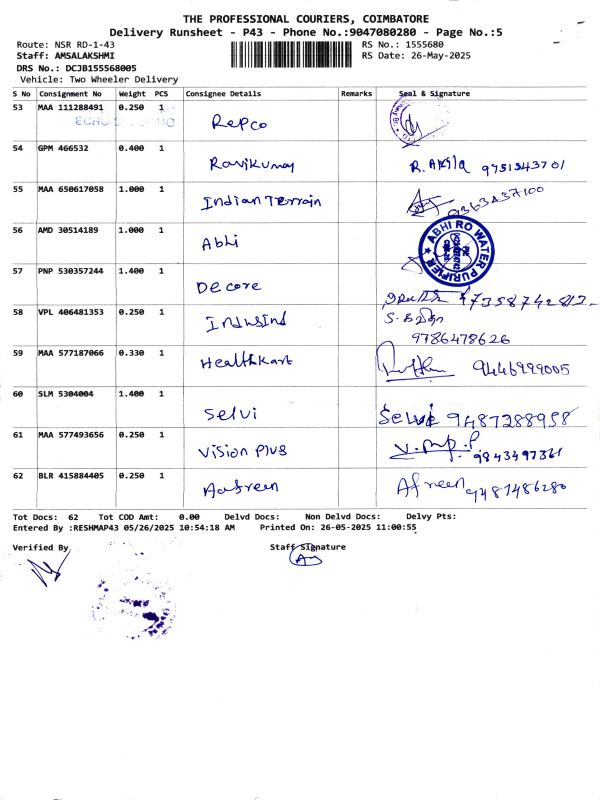 THE PROFESSIONAL COURIERS, COIMBATORE
Delivery Runsheet - P43 - Phone No.:9047080280 - Page No.:5
Route: NSR RD-1-43 RS No.: 1555680
Staff: AMSALAKSHMI RS Date: 26-May-2025
DRS No.: DCJB155568005
Vehicle: Two Wheeler Delivery
S No Consignment No Weight PCS Consignee Details Remarks Seal & Signature
53 MAA 111288491 0.250 1 Repco
54 GPM 466532 0.400 1 Ravikumar R. Akila 9751543701
55 MAA 650617058 1.000 1 Indian Terrain 9363437100
56 AMD 30514189 1.000 1 Abhi ABHI RO WATER PURIFIER
57 PNP 530357244 1.400 1 Decore 7358742812
58 VPL 406481353 0.250 1 IndusInd 9786478626
59 MAA 577187066 0.330 1 Healthkart 9446999005
60 SLM 5304004 1.400 1 Selvi Selvi 9487288958
61 MAA 577493656 0.250 1 Vision Plus 9843497361
62 BLR 415884405 0.250 1 Aafreen Afreen 9481486280
Tot Docs: 62 Tot COD Amt: 0.00 Delvd Docs: Non Delvd Docs: Delvy Pts:
Entered By :RESHMAP43 05/26/2025 10:54:18 AM Printed On: 26-05-2025 11:00:55
Verified By Staff Signature